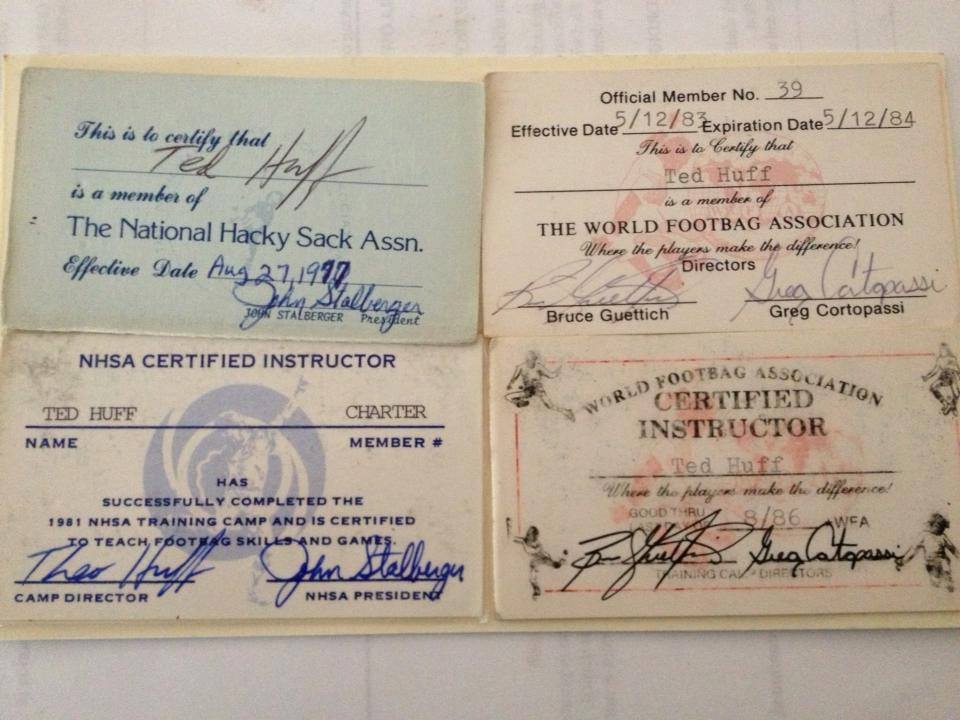 This is to certify that
Ted Huff
is a member of
The National Hacky Sack Assn.
Effective Date Aug 27, 1977
John Stalberger
JOHN STALBERGER President
Official Member No. 39
Effective Date 5/12/83 Expiration Date 5/12/84
This is to Certify that
Ted Huff
is a member of
THE WORLD FOOTBAG ASSOCIATION
Where the players make the difference!
Directors
Greg Cortopassi
Bruce Guettich Greg Cortopassi
NHSA CERTIFIED INSTRUCTOR
TED HUFF CHARTER
NAME MEMBER #
HAS
SUCCESSFULLY COMPLETED THE
1981 NHSA TRAINING CAMP AND IS CERTIFIED
TO TEACH FOOTBAG SKILLS AND GAMES.
Theo Huff John Stalberger
CAMP DIRECTOR NHSA PRESIDENT
WORLD FOOTBAG ASSOCIATION
CERTIFIED
INSTRUCTOR
Ted Huff
Where the players make the difference!
GOOD THRU
8/86 WFA
Greg Cortopassi
TRAINING CAMP DIRECTORS